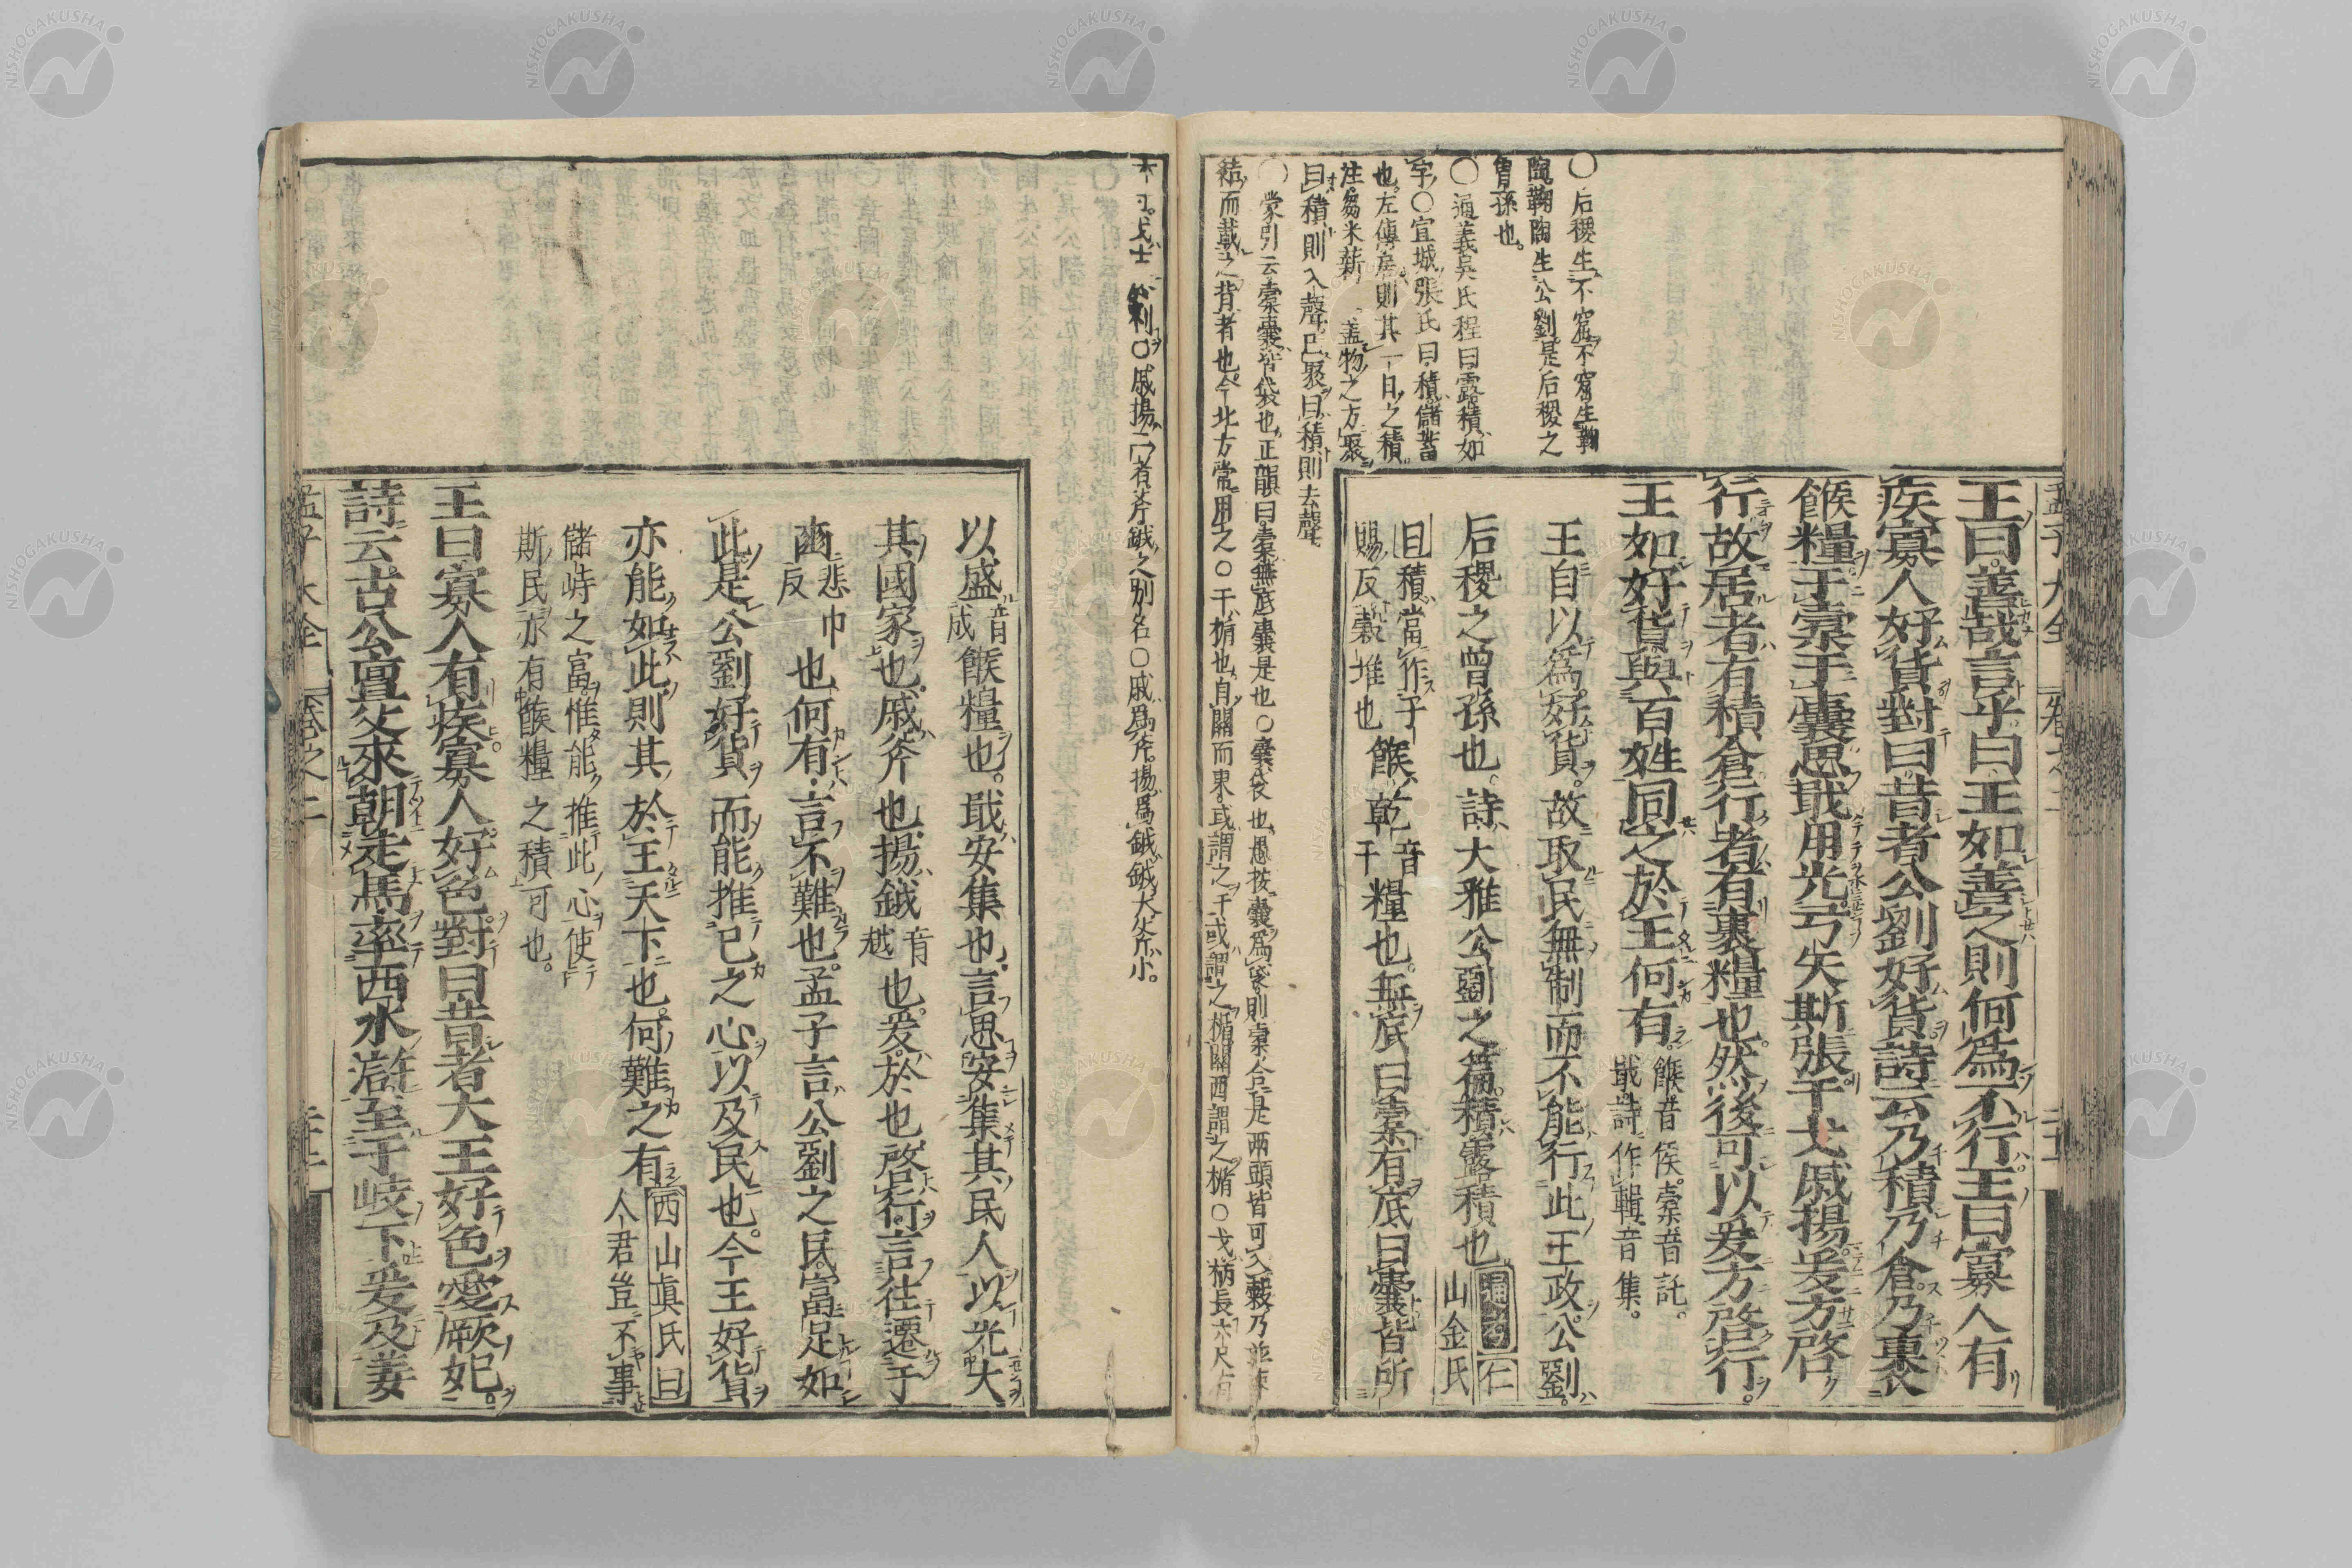 孟子大全
卷之二
二十二
王曰善哉言乎曰王如善之則何爲不行王曰寡人有
疾寡人好貨對曰昔者公劉好貨詩云乃積乃倉乃裹
餱糧于橐于囊思戢用光弓矢斯張干戈戚揚爰方啓
行故居者有積倉行者有裹糧也然後可以爰方啓行
王如好貨與百姓同之於王何有
餱音侯橐音託
戢詩作輯音集
王自以爲好貨故取民無制而不能行此王政公劉
后稷之曾孫也詩大雅公劉之篇積露積也
通考仁
山金氏
曰積當作子
賜反粟堆也
餱乾
音
干
糧也無底曰橐有底曰囊皆所
〇后稷生不窋不窋生鞠
陶鞠陶生公劉是后稷之
曾孫也
〇通義吳氏程曰露積如
字〇宜城張氏曰積儲蓄
也左傳居則具一日之積
注芻米薪 盖物之方聚
曰積則入聲已聚曰積則去聲
〇蒙引云橐囊皆袋也正韻曰橐無底囊是也〇囊袋也愚按囊爲袋則橐合是兩頭皆可入載乃並束
結而載之背者也今北方常用之〇干楯也自關而東或謂之干或謂之楯關西謂之楯〇戈柄長六尺
〇戚揚二者斧鉞之別名〇戚爲斧揚爲鉞鉞大斧小
以盛
音
成
餱糧也戢安集也言思安集其民人以光大
其國家也戚斧也揚鉞
音
越
也爰於也啓行言往遷于
豳
悲巾
反
也何有言不難也孟子言公劉之民富足如
此是公劉好貨而能推己之心以及民也今王好貨
亦能如此則其於王天下也何難之有
西山眞氏曰
人君豈不事
儲峙之富惟能推此心使
斯民亦有餱糧之積可也
王曰寡人有疾寡人好色對曰昔者大王好色愛厥妃
詩云古公亶父來朝走馬率西水滸至于岐下爰及姜
孟子大全
卷之二
二十二